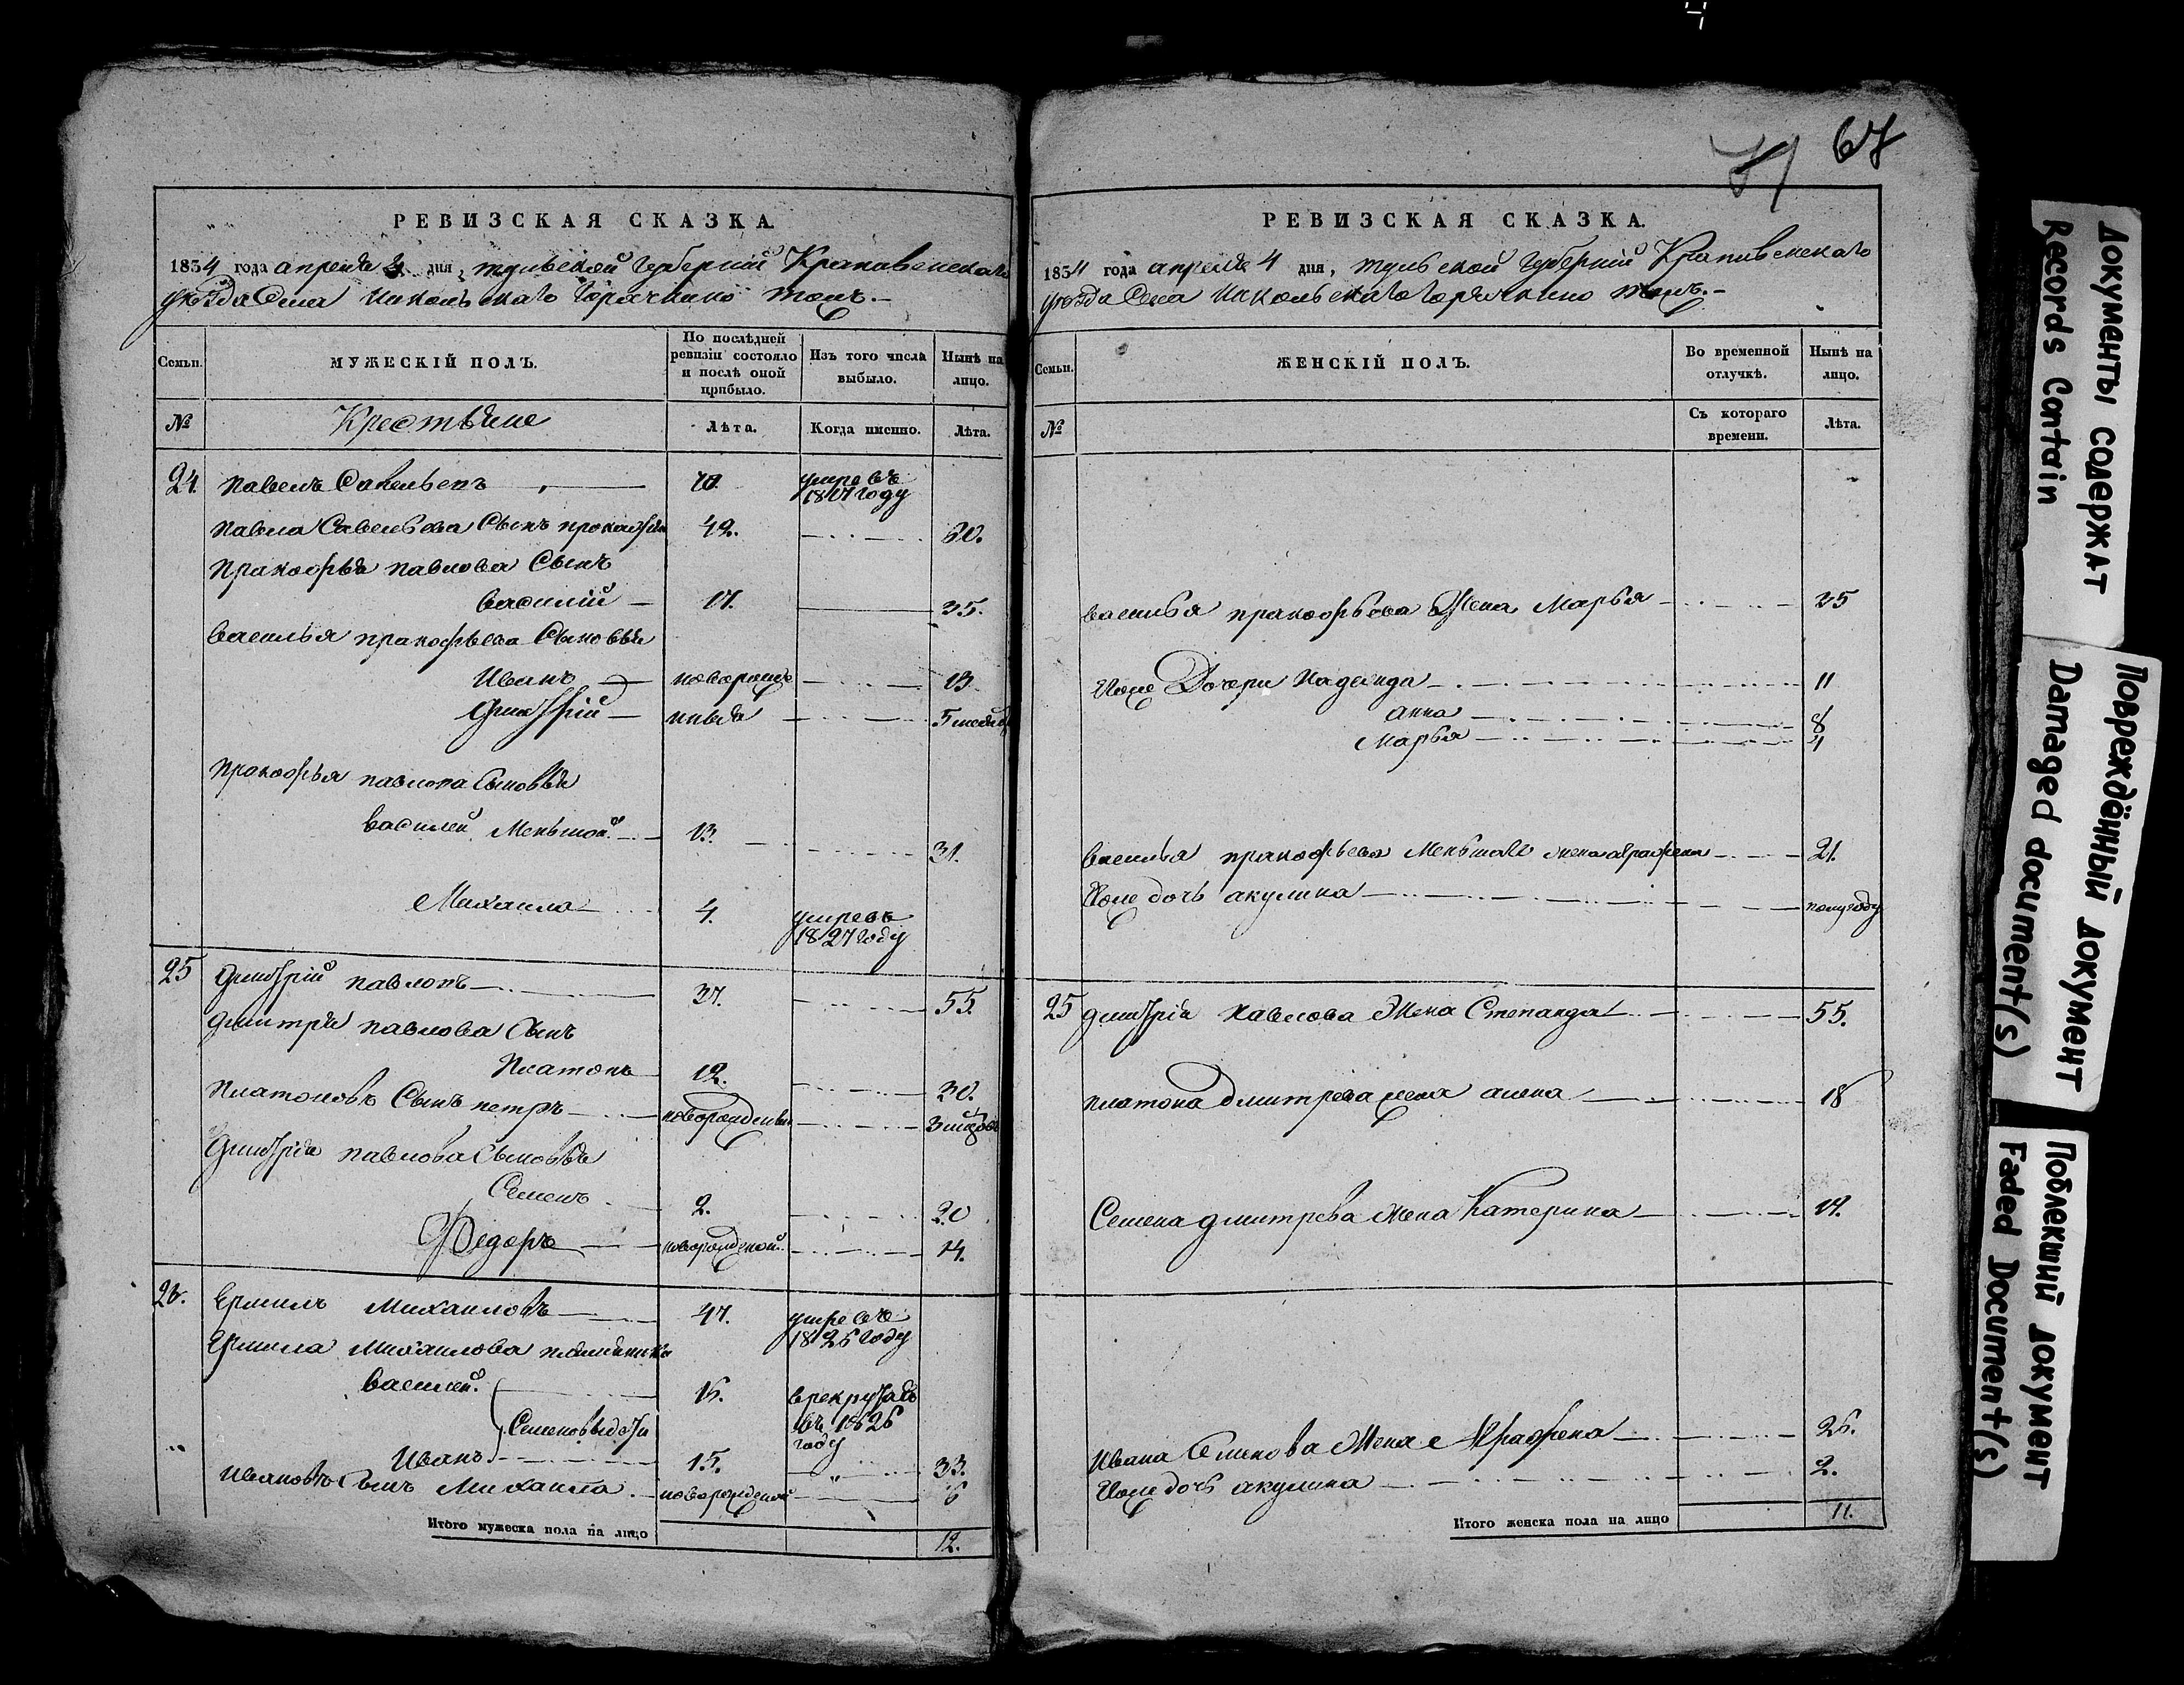 71 67
РЕВИЗСКАЯ СКАЗКА.
1834 года апреля 4 дня, тульской губернии Крапивенскаго
уезда Села Никольскаго Горячкино тожъ.
Семьи.
МУЖЕСКІЙ ПОЛЪ.
По послѣдней ревизіи состояло и послѣ оной прибыло.
Изъ того числа выбыло.
Нынѣ на лицо.
№
Крестьяне
Лѣта.
Когда именно.
Лѣта.
24. павелъ Савельевъ умре въ
18 году
павла Савельева Сынъ прокофей 42. 60.
Пракофья павлова Сынъ
василий 17. 35.
василья пракофьева Сыновья
Иванъ новорожде 13
Дмитрий 5 недель
Прокофья павлова Сыновья
василей Меньшой 13. 31.
Михаила 4. умре въ
1827 году
25 Дмитрий павловъ 37. 55.
дмитрия павлова Сынъ
Платонъ 12. 30.
Платоновъ Сынъ петръ новорожденный 3
Дмитрия павлова Сыновья
Семенъ 2. 20
Федоръ новорожденой 14.
26. Ермилъ Михаиловъ 47. умре въ
1826 году
Ермила Михаилова племянники
василей 16. в рекрутахъ
въ 1826
году
Семеновы дети
Иванъ 15. 33.
Ивановъ Сынъ Михаила новорожденой 6
Итого мужеска пола на лицо 12.
РЕВИЗСКАЯ СКАЗКА.
1834 года апреля 4 дня, тульской губернии Крапивенскаго
уезда Села Никольскаго Горячкино тожъ.
Семьи.
ЖЕНСКІЙ ПОЛЪ.
Во временной отлучкѣ.
Нынѣ на лицо.
№
Съ котораго времени.
Лѣта.
василья пракофьева Жена Марья 35
Ихже Дочери Надежда 11
Анна 8
Марья 4
василья пракофьева Меньшаго жена аграфена 21.
Ихже дочь акулина полугоду
25 дмитрия павлова Жена Степанида 55.
платона дмитрева жена алена 18
Семена дмитрева жена Катерина 19.
Ивана Семенова Жена Аграфена 26.
Ихже дочь акулина 2.
Итого женска пола на лицо 11.
Документы содержат
Records Contain
Повреждённый документ
Damaged document(s)
Поблекший документ
Faded Document(s)